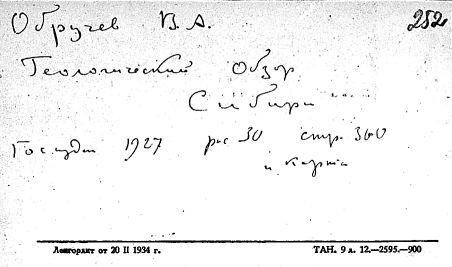 Обручев В. А. 252
Геологический Обзор
Сибири
Госиздат 1927 рис 30 стр. 360
и карта
Ленгорлит от 20 II 1934 г. ТАН. 9 л. 12.—2595.—900